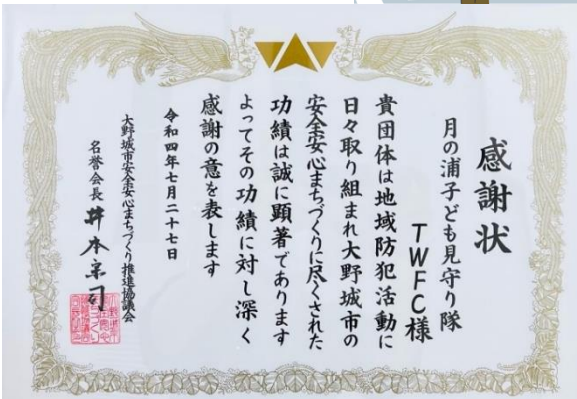 感謝状
月の浦子ども見守り隊
TWFC様
貴団体は地域防犯活動に
日々取り組まれ大野城市の
安全安心まちづくりに尽くされた
功績は誠に顕著であります
よってその功績に対し深く
感謝の意を表します
令和四年七月二十七日
大野城市安全安心まちづくり推進協議会
名誉会長 井本宗司